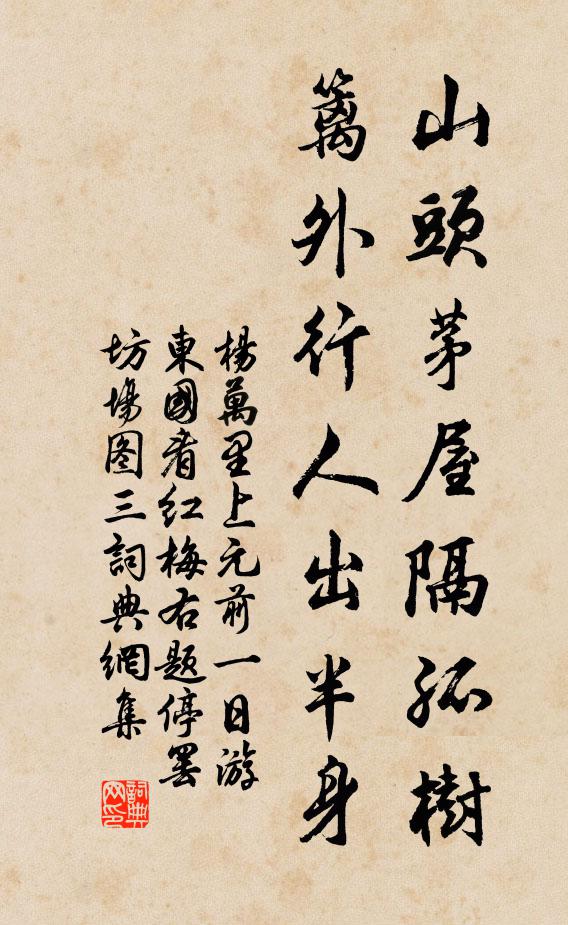 山頭茅屋隔孤樹
籬外行人出半身
楊萬里上元前一日游
東國看红梅右题停罢
坊場图三詞典網集
詞典網印